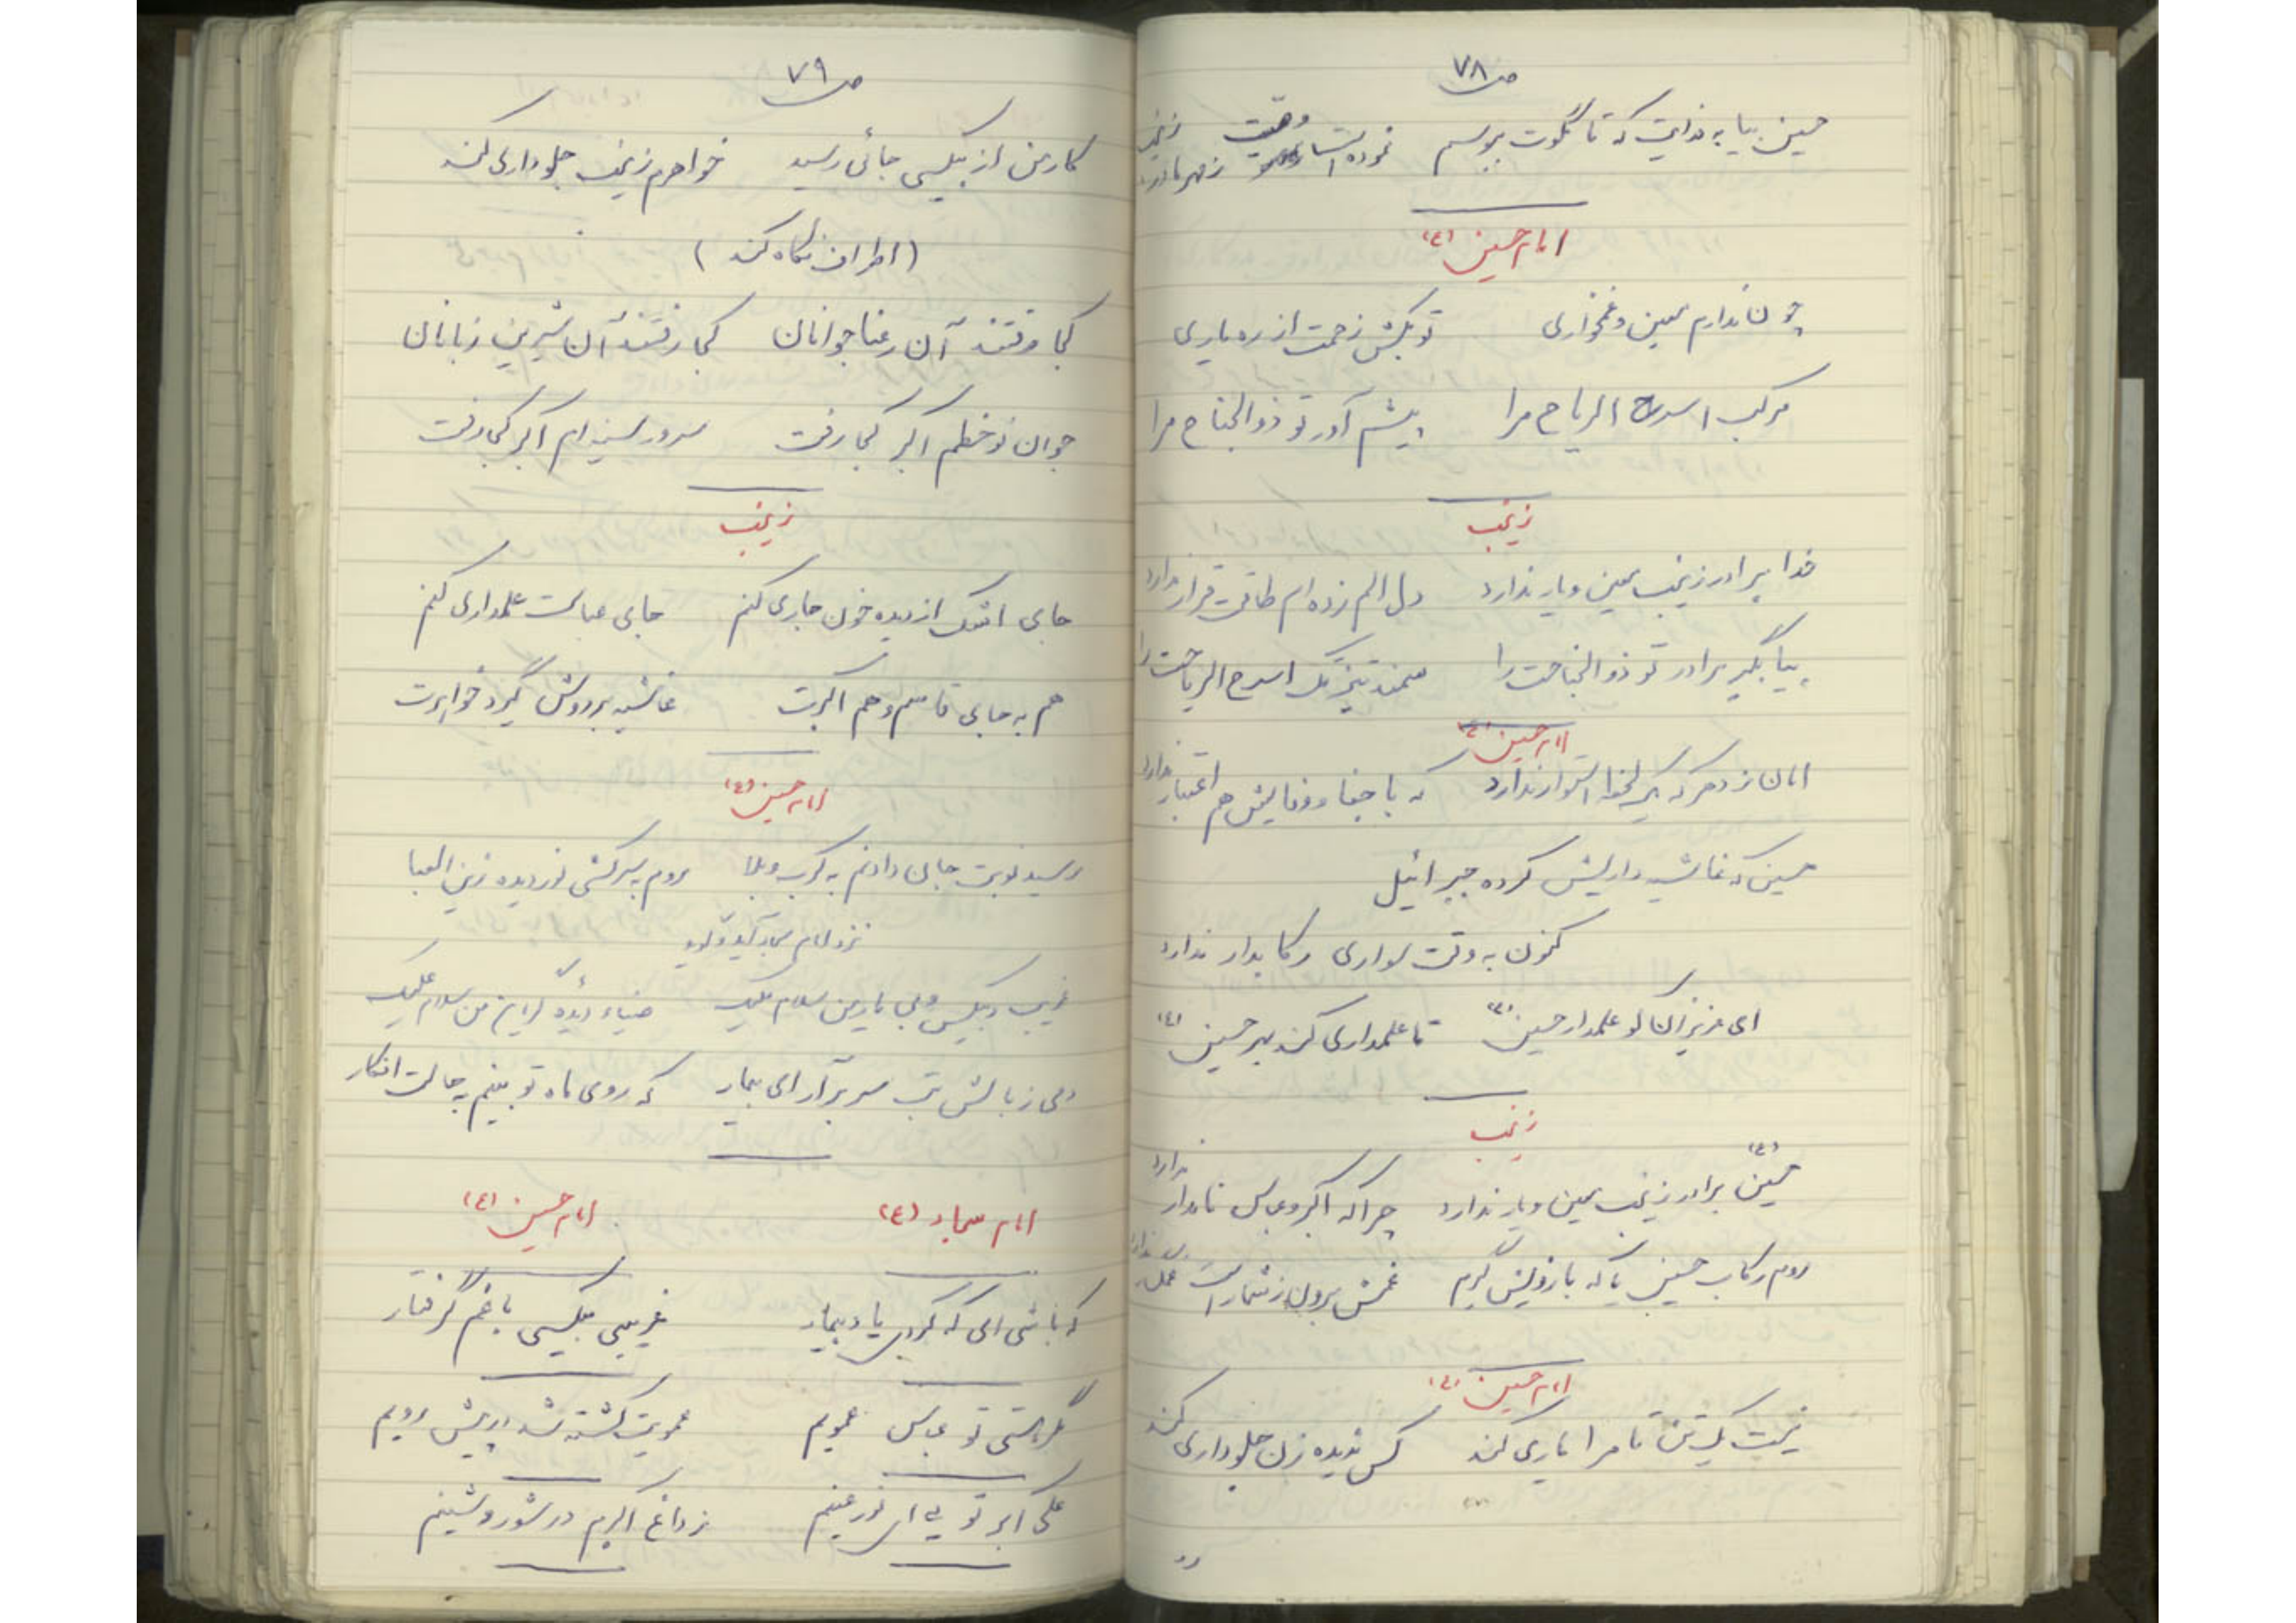 ص ۷۸
حسین بیا به فدایت که تا گلوت ببوسم نموده است وصیت زمهر مادر زینب
امام حسین (ع)
چون ندارم معین و غمخواری تو بکش زحمت از ره یاری
مرکب اسرع الریاح مرا پیشم آور تو ذوالجناح مرا
زینب
خدا برادر زینب معین و یار ندارد دل الم زده ام طاقت قرار ندارد
بیا بگیر برادر تو ذوالجناحت را سمند تیزتک اسرع الریاحت را
امام حسین (ع)
امان ز دهر که یک لحظه استوار ندارد که با جفا و وفایش هم اعتبار ندارد
حسین که غاشیه داریش کرده جبرائیل
کنون به وقت سواری رکابدار ندارد
ای عزیزان کو علمدار حسین (ع) تا علمداری کند بهر حسین (ع)
زینب
حسین (ع) برادر زینب معین و یار ندارد چرا که اکبر و عباس نامدار ندارد
روم رکاب حسین یا که بازویش گیرم غمش برون ز شمار است
امام حسین (ع)
نیست یک تن تا مرا یاری کند کس ندیده زن جلوداری کند
ص ۷۹
کار من از بیکسی جائی رسید خواهرم زینب جلوداری کند
(اطراف نگاه کند)
کجا رفتند آن رعنا جوانان کجا رفتند آن شیرین زبانان
جوان نوخطم اکبر کجا رفت سرور سینه ام اکبر کجا رفت
زینب
جای اشک از دیده خون جاری کنم جای عباست علمداری کنم
هم به جای قاسم و هم اکبرت غاشیه بر دوش گیرد خواهرت
امام حسین (ع)
رسید نوبت جان دادنم به کرب و بلا روم به سرکشی نور دیده زین العبا
نزد امام سجاد آید و گوید
غریب و بیکس و بی یار من سلام علیک ضیاء دیده من سلام علیک
دمی ز بالش تب سر برآر ای بیمار که روی ماه تو بینم به حالت افکار
امام سجاد (ع) امام حسین (ع)
که باشی ای که کردی یاد بیمار غریبی بیکسی با غم گرفتار
مگر هستی تو عباس عمویم عمویت کشته شد در پیش رویم
علی اکبر تویی ای نور عینم ز داغ اکبرم در شور و شینم